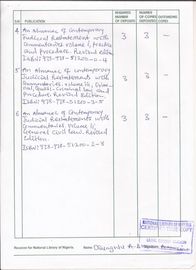 S/N PUBLICATION REQUIRED NUMBER OF DEPOSITS NUMBER OF COPIES DEPOSITED OUTSTANDING
4 An Almanac of Contemporary
Judicial Restatements with
Commentaries volume I, Practice
and Procedure Revised Edition
ISBN: 978-978-51200-0-4
3 3
5 An Almanac of Contemporary
Judicial Restatements with
Commentaries, volume
Criminal Law and
Procedure Revised
Edition.
ISBN: 978-978-51200-2-8
3 3
6 An Almanac of Contemporary
Judicial Restatements with
Commentaries, volume
General Civil Law Revised
Edition.
3 3
NATIONAL LIBRARY OF NIGERIA
CERTIFIED TRUE COPY
Receiver for National Library of Nigeria
Name